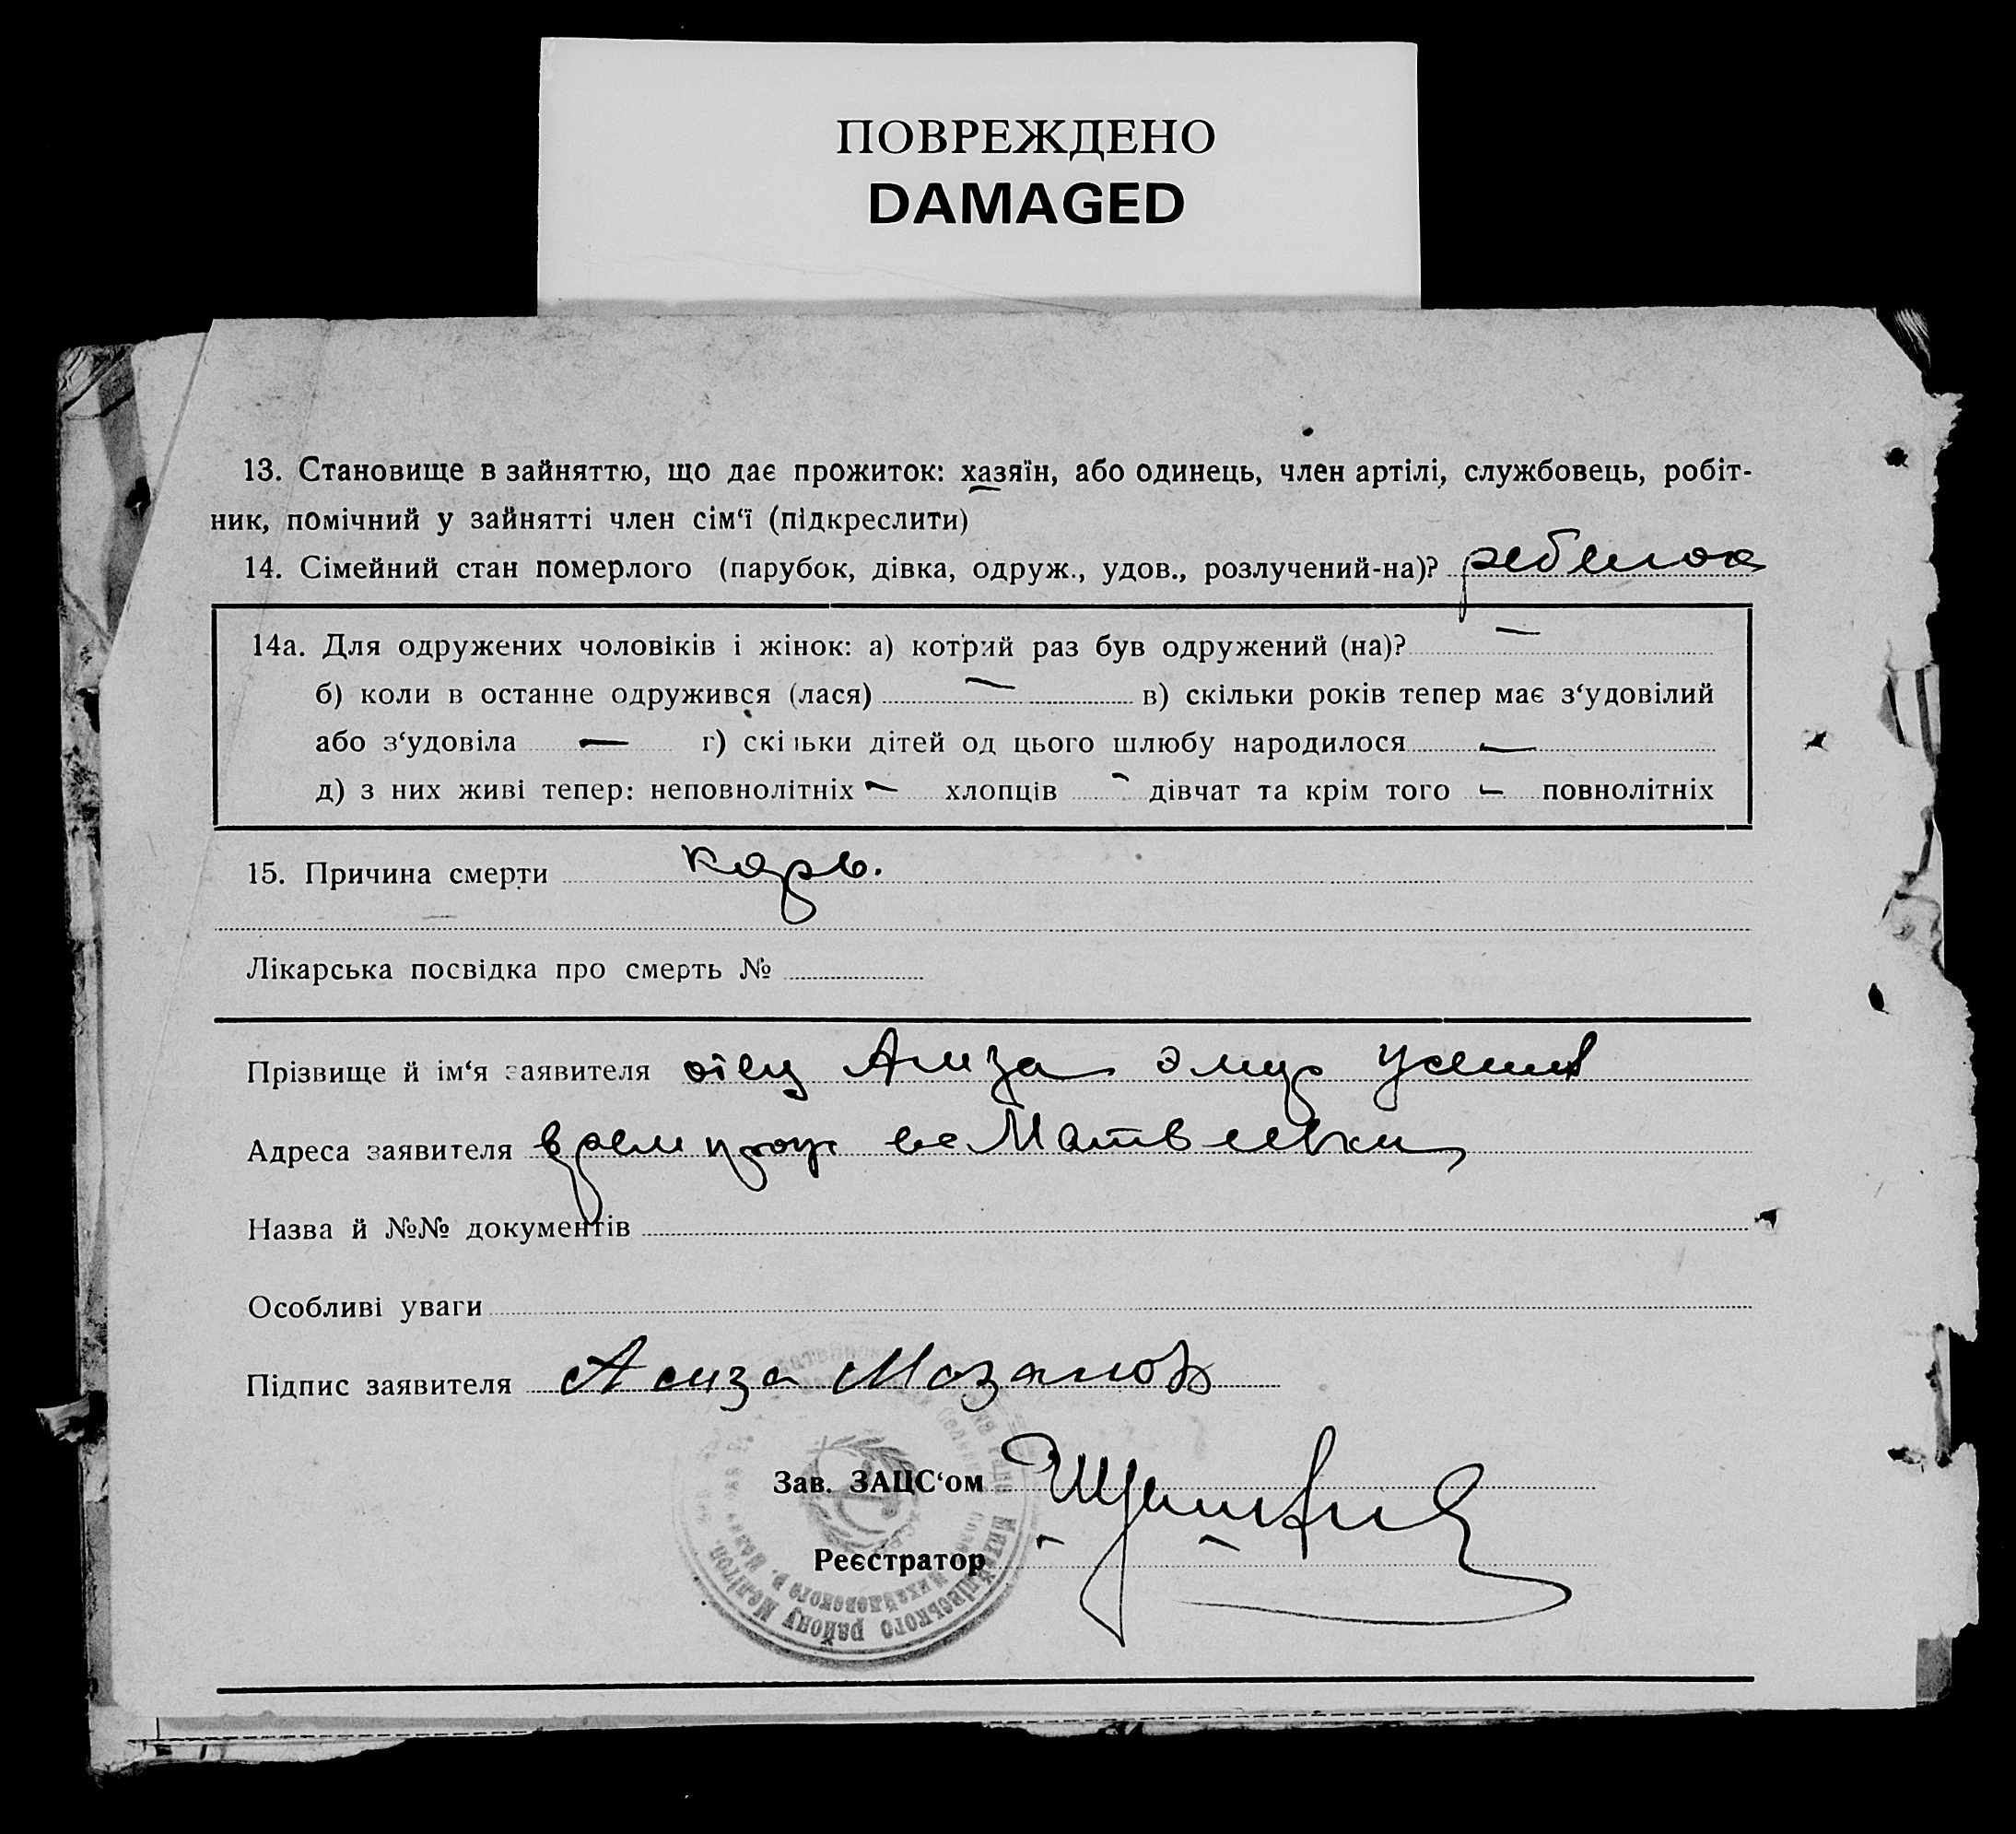 ПОВРЕЖДЕНО
DAMAGED
13. Становище в зайняттю, що дає прожиток: хазяїн, або одинець, член артілі, службовець, робіт-
ник, помічний у зайнятті член сім‘ї (підкреслити)
14. Сімейний стан померлого (парубок, дівка, одруж., удов., розлучений-на)? ребенок
14а. Для одружених чоловіків і жінок: а) котрий раз був одружений (на)? —
б) коли в останне одружився (лася) — в) скільки років тепер має з‘удовілий
або з‘удовіла — г) скільки дітей од цього шлюбу народилося —
д) з них живі тепер: неповнолітніх — хлопців — дівчат та крім того — повнолітніх
15. Причина смерти корь.
Лікарська посвідка про смерть №
Прізвище й ім‘я заявителя отец Амза
Адреса заявителя Матвеевки
Назва й №№ документів
Особливі уваги
Підпис заявителя
Зав. ЗАЦС‘ом
Реєстратор